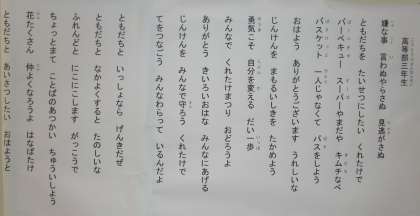 高等部三年生
嫌な事 言わぬやらさぬ 見逃がさぬ
ともだちを たいせつにしたい くれたけで
バーベキュー スーパーやまだや キムチなべ
バスケット 一人じゃなくて パスをしよう
おはよう ありがとうございます うれしいな
じんけんを まもるいしきを たかめよう
勇気こそ 自分を変える だい一歩
みんなで くれたけまつり おどろうよ
ありがとう きいろいおはな みんなにあげる
じんけんを みんなで守ろう くれたけで
てをつなごう みんなわらって いるんだよ
ともだちと いっしょなら げんきだぜ
ともだちと なかよくすると たのしいな
ふれんどと にこにこします がっこうで
ちょっとまて ことばのあつかい ちゅういしよう
花たくさん 仲よくなろうよ はなばたけ
ともだちと あいさつしたい おはようと